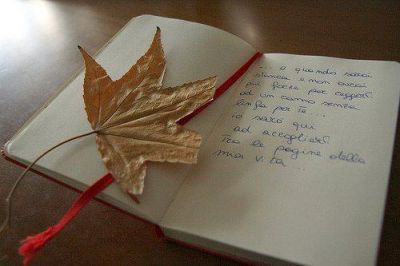 ... e quando sarai
stanca e non avrai
più forze per reggerti
ad un ramo senza
linfa per te ...
io sarò qui
ad accoglierti
tra le pagine della
mia vita ...